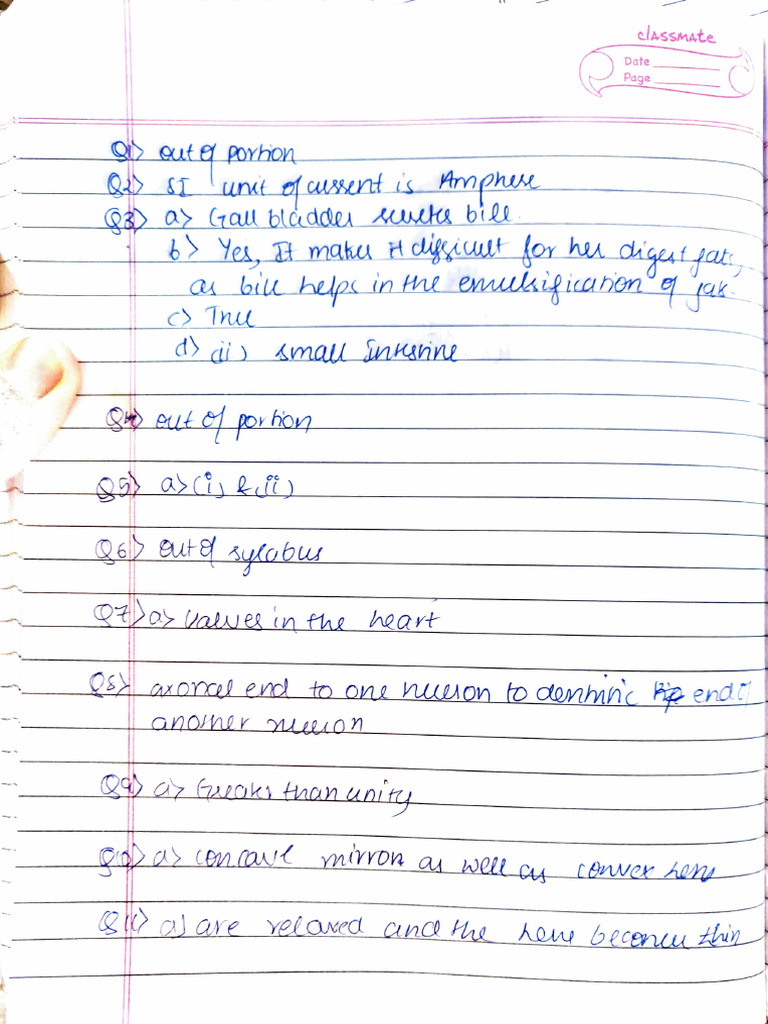 classmate
Date
Page
Q1> out of portion
Q2> SI unit of current is Amphere
Q3> a> Gall bladder secretes bile.
b> Yes, It makes it difficult for her digest fats,
as bile helps in the emulsification of fats.
c> True
d> (ii) small Intestine
Q4> out of portion
Q5> a>(i) & (ii)
Q6> out of sylabus
Q7> a> valves in the heart
Q8> axonal end to one neuron to dentritic end of
another neuron
Q9> a> Greater than unity
Q10> a> concave mirror as well as convex lens
Q11> a) are relaxed and the lens becomes thin